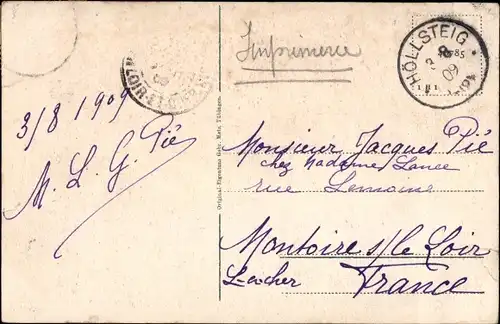 Imprimerie
HÖLLSTEIG
3 8
09
3/8 1909
M. L. G. Pié
Original-Eigentum Gebr. Metz, Tübingen.
Monsieur Jacques Pié
chez Madame Lance
rue Lemoine
Montoire s/le Loir
L-et-cher France